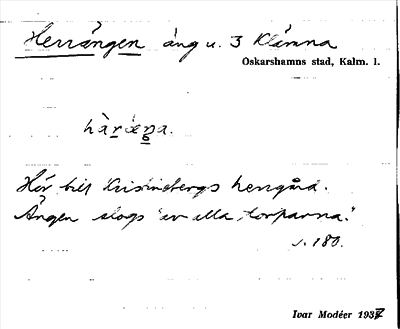 Herrängen äng u. 3 Klämna
Oskarshamns stad, Kalm. l.
hàræŋa.
Hör till Kristinebergs herrgård.
Ängen slogs "av alla torparna."
s. 180.
Ivar Modéer 1937